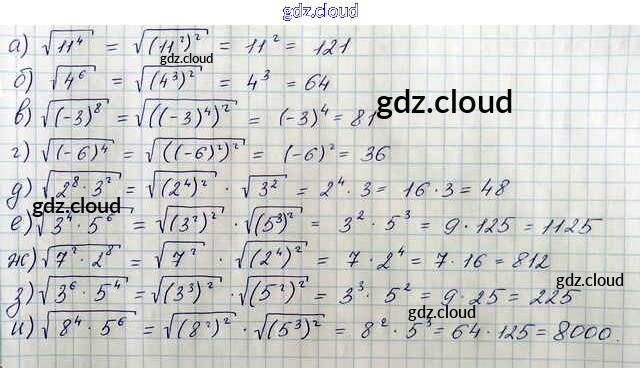 gdz.cloud
а) √11⁴ = √(11²)² = 11² = 121
gdz.cloud
б) √4⁶ = √(4³)² = 4³ = 64
gdz.cloud
в) √(-3)⁸ = √((-3)⁴)² = (-3)⁴ = 81
г) √(-6)⁴ = √((-6)²)² = (-6)² = 36
gdz.cloud
д) √2⁸ · 3² = √(2⁴)² · √3² = 2⁴ · 3 = 16 · 3 = 48
gdz.cloud
е) √3⁴ · 5⁶ = √(3²)² · √(5³)² = 3² · 5³ = 9 · 125 = 1125
ж) √7² · 2⁸ = √7² · √(2⁴)² = 7 · 2⁴ = 7 · 16 = 812
gdz.cloud
з) √3⁶ · 5⁴ = √(3³)² · √(5²)² = 3³ · 5² = 9 · 25 = 225
и) √8⁴ · 5⁶ = √(8²)² · √(5³)² = 8² · 5³ = 64 · 125 = 8000.
gdz.cloud